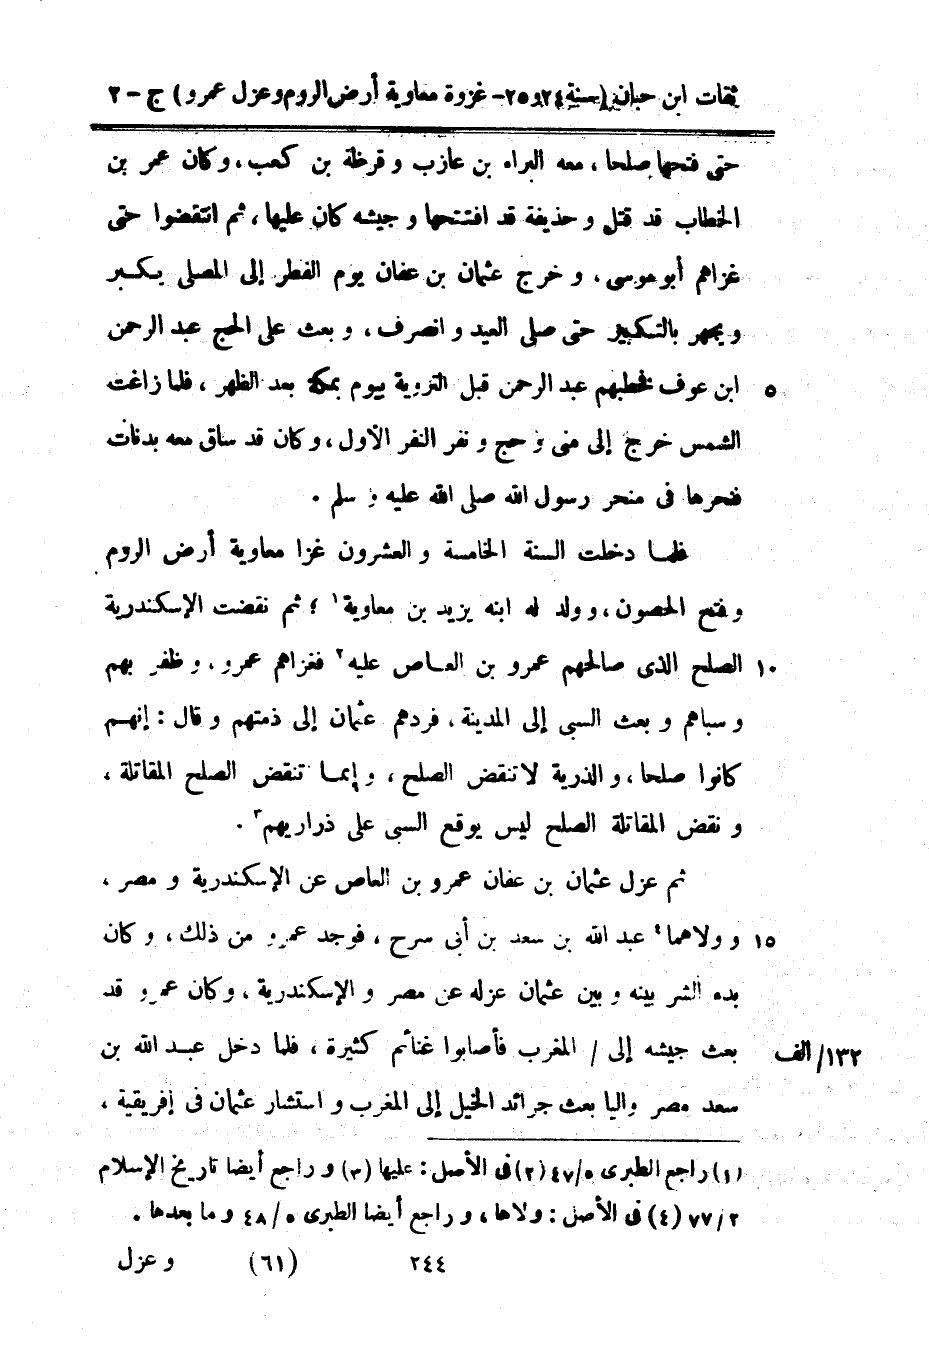 ثقات ابن حبان (سنة ٢٤ و ٢٥ - غزوة معاوية أرض الروم وعزل عمرو) ج - ٢
حتى فتحها صلحا ، معه البراء بن عازب و قرظة بن كعب ، و كان عمر بن
الخطاب قد قتل و حذيفة قد افتتحها و جيشه كان عليها ، ثم انتقضوا حتى
غزاهم أبو موسى ، و خرج عثمان بن عفان يوم الفطر إلى المصلى يكبر
و يجهر بالتكبير حتى صلى العيد و انصرف ، و بعث على الحج عبد الرحمن
٥ ابن عوف فخطبهم عبد الرحمن قبل التروية بيوم بمكة بعد الظهر ، فلما زاغت
الشمس خرج إلى منى و حج و نفر النفر الأول ، و كان قد ساق معه بدنات
فنحرها فى منحر رسول الله صلى الله عليه و سلم .
فلما دخلت السنة الخامسة و العشرون غزا معاوية أرض الروم
و فتح الحصون ، و ولد له ابنه يزيد بن معاوية١ ؛ ثم نقضت الإسكندرية
١٠ الصلح الذى صالحهم عمرو بن العاص عليه٢ فغزاهم عمرو ، و ظفر بهم
و سباهم و بعث السبى إلى المدينة ، فردهم عثمان إلى ذمتهم و قال : إنهم
كانوا صلحا ، و الذرية لا تنقض الصلح ، و إنما تنقض الصلح المقاتلة ،
و نقض المقاتلة الصلح ليس يوقع السبى على ذراريهم٣ .
ثم عزل عثمان بن عفان عمرو بن العاص عن الإسكندرية و مصر ،
١٥ و ولاهما٤ عبد الله بن سعد بن أبى سرح ، فوجد عمرو من ذلك ، و كان
بدء الشر بينه و بين عثمان عزله عن مصر و الإسكندرية ، و كان عمرو قد
١٣٢/ الف بعث جيشه إلى / المغرب فأصابوا غنائم كثيرة ، فلما دخل عبد الله بن
سعد مصر واليا بعث جرائد الخيل إلى المغرب و استشار عثمان فى إفريقية ،
(١) راجع الطبرى ٥/٤٧ (٢) فى الأصل : عليها (٣) و راجع أيضا تاريخ الإسلام
٢/٧٧ (٤) فى الأصل : ولاها ، و راجع أيضا الطبرى ٥/٤٨ و ما بعدها .
٢٤٤ (٦١) و عزل